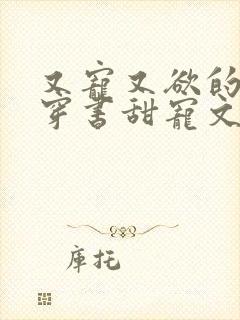 又寵又欲的
穿書甜寵文
庫托